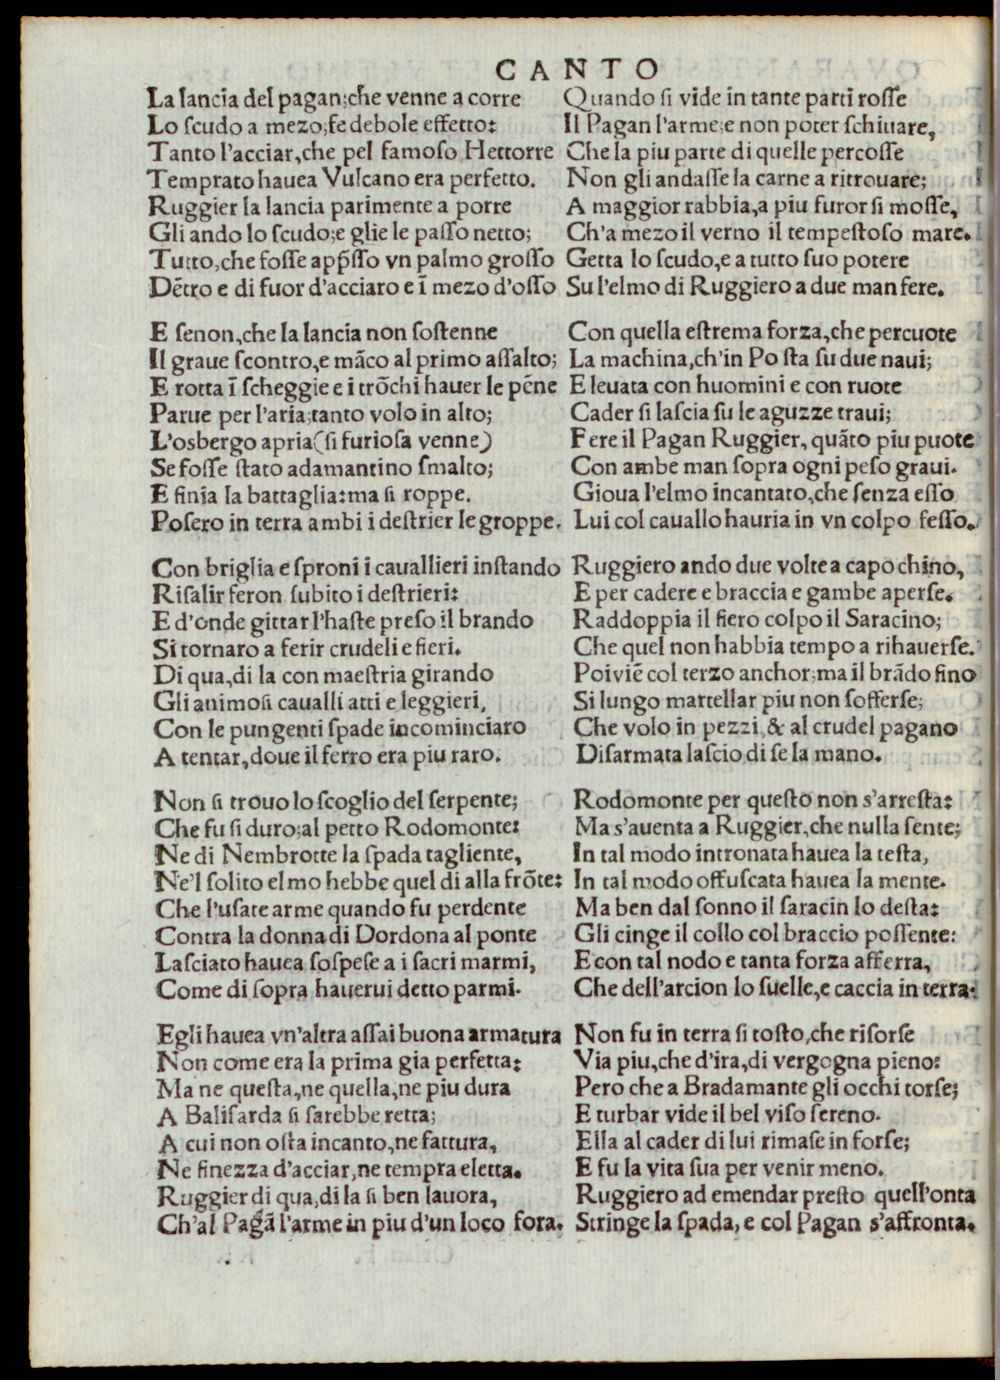 CANTO
La lancia del pagan;che venne a corre
Lo ſcudo a mezo;fe debole effetto:
Tanto l'acciar,che pel famoſo Hettorre
Temprato hauea Vulcano era perfetto.
Ruggier la lancia parimente a porre
Gli ando lo ſcudo;e glie le paſſo netto;
Tutto,che foſſe app̃ſſo vn palmo groſſo
Dẽtro e di fuor d'acciaro e ĩ mezo d'oſſo
E ſenon,che la lancia non ſoſtenne
Il graue ſcontro,e mãco al primo aſſalto;
E rotta ĩ ſcheggie e i trõchi hauer le pẽne
Parue per l'aria;tanto volo in alto;
L'osbergo apria(ſi furioſa venne)
Se foſſe ſtato adamantino ſmalto;
E finia la battaglia:ma ſi roppe.
Poſero in terra ambi i deſtrier le groppe.
Con briglia e ſproni i cauallieri inſtando
Riſalir feron ſubito i deſtrieri:
E d'onde gittar l'haſte preſo il brando
Si tornaro a ferir crudeli e fieri.
Di qua,di la con maeſtria girando
Gli animoſi caualli atti e leggieri,
Con le pungenti ſpade incominciaro
A tentar,doue il ferro era piu raro.
Non ſi trouo lo ſcoglio del ſerpente;
Che fu ſi duro;al petto Rodomonte:
Ne di Nembrotte la ſpada tagliente,
Ne'l ſolito elmo hebbe quel di alla frõte:
Che l'uſate arme quando fu perdente
Contra la donna di Dordona al ponte
Laſciato hauea ſoſpeſe a i ſacri marmi,
Come di ſopra hauerui detto parmi.
Egli hauea vn'altra aſſai buona armatura
Non come era la prima gia perfetta:
Ma ne queſta,ne quella,ne piu dura
A Baliſarda ſi ſarebbe retta;
A cui non oſta incanto,ne fattura,
Ne finezza d'acciar,ne tempra eletta.
Ruggier di qua,di la ſi ben lauora,
Ch'al Pagã l'arme in piu d'un loco fora.
Quando ſi vide in tante parti roſſe
Il Pagan l'arme;e non poter ſchiuare,
Che la piu parte di quelle percoſſe
Non gli andaſſe la carne a ritrouare;
A maggior rabbia,a piu furor ſi moſſe,
Ch'a mezo il verno il tempeſtoſo mare.
Getta lo ſcudo,e a tutto ſuo potere
Su l'elmo di Ruggiero a due man fere.
Con quella eſtrema forza,che percuote
La machina,ch'in Po ſta ſu due naui;
E leuata con huomini e con ruote
Cader ſi laſcia ſu le aguzze traui;
Fere il Pagan Ruggier, quãto piu puote
Con ambe man ſopra ogni peſo graui.
Gioua l'elmo incantato,che ſenza eſſo
Lui col cauallo hauria in vn colpo feſſo.
Ruggiero ando due volte a capo chino,
E per cadere e braccia e gambe aperſe.
Raddoppia il fiero colpo il Saracino;
Che quel non habbia tempo a rihauerſe.
Poi viẽ col terzo anchor;ma il brãdo fino
Si lungo martellar piu non ſofferſe;
Che volo in pezzi,& al crudel pagano
Diſarmata laſcio di ſe la mano.
Rodomonte per queſto non s'arreſta:
Ma s'auenta a Ruggier,che nulla ſente;
In tal modo intronata hauea la teſta,
In tal modo offuſcata hauea la mente.
Ma ben dal ſonno il ſaracin lo deſta:
Gli cinge il collo col braccio poſſente:
E con tal nodo e tanta forza afferra,
Che dell'arcion lo ſuelle,e caccia in terra.
Non fu in terra ſi toſto,che riſorſe
Via piu,che d'ira,di vergogna pieno:
Pero che a Bradamante gli occhi torſe;
E turbar vide il bel viſo ſereno.
Ella al cader di lui rimaſe in forſe;
E fu la vita ſua per venir meno.
Ruggiero ad emendar preſto quell'onta
Stringe la ſpada, e col Pagan s'affronta.